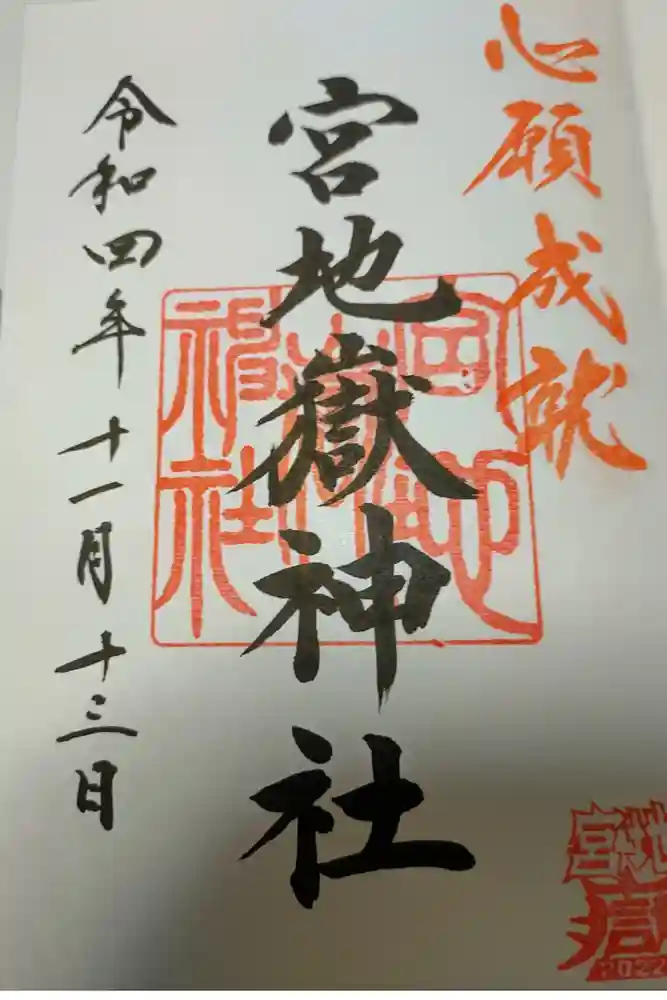 心願成就
宮地嶽神社
令和四年十一月十三日
宮地嶽神社
宮地嶽
2022